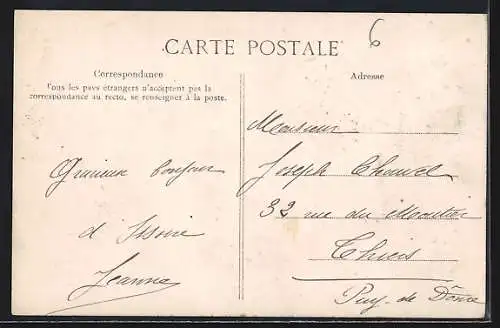 6
CARTE POSTALE
Correspondance
Tous les pays étrangers n'acceptent pas la
correspondance au recto, se renseigner à la poste.
Adresse
bonjour
d'Issoire
Jeanne
Monsieur
Joseph
32 rue du Moutier
Thiers
Puy-de Dôme